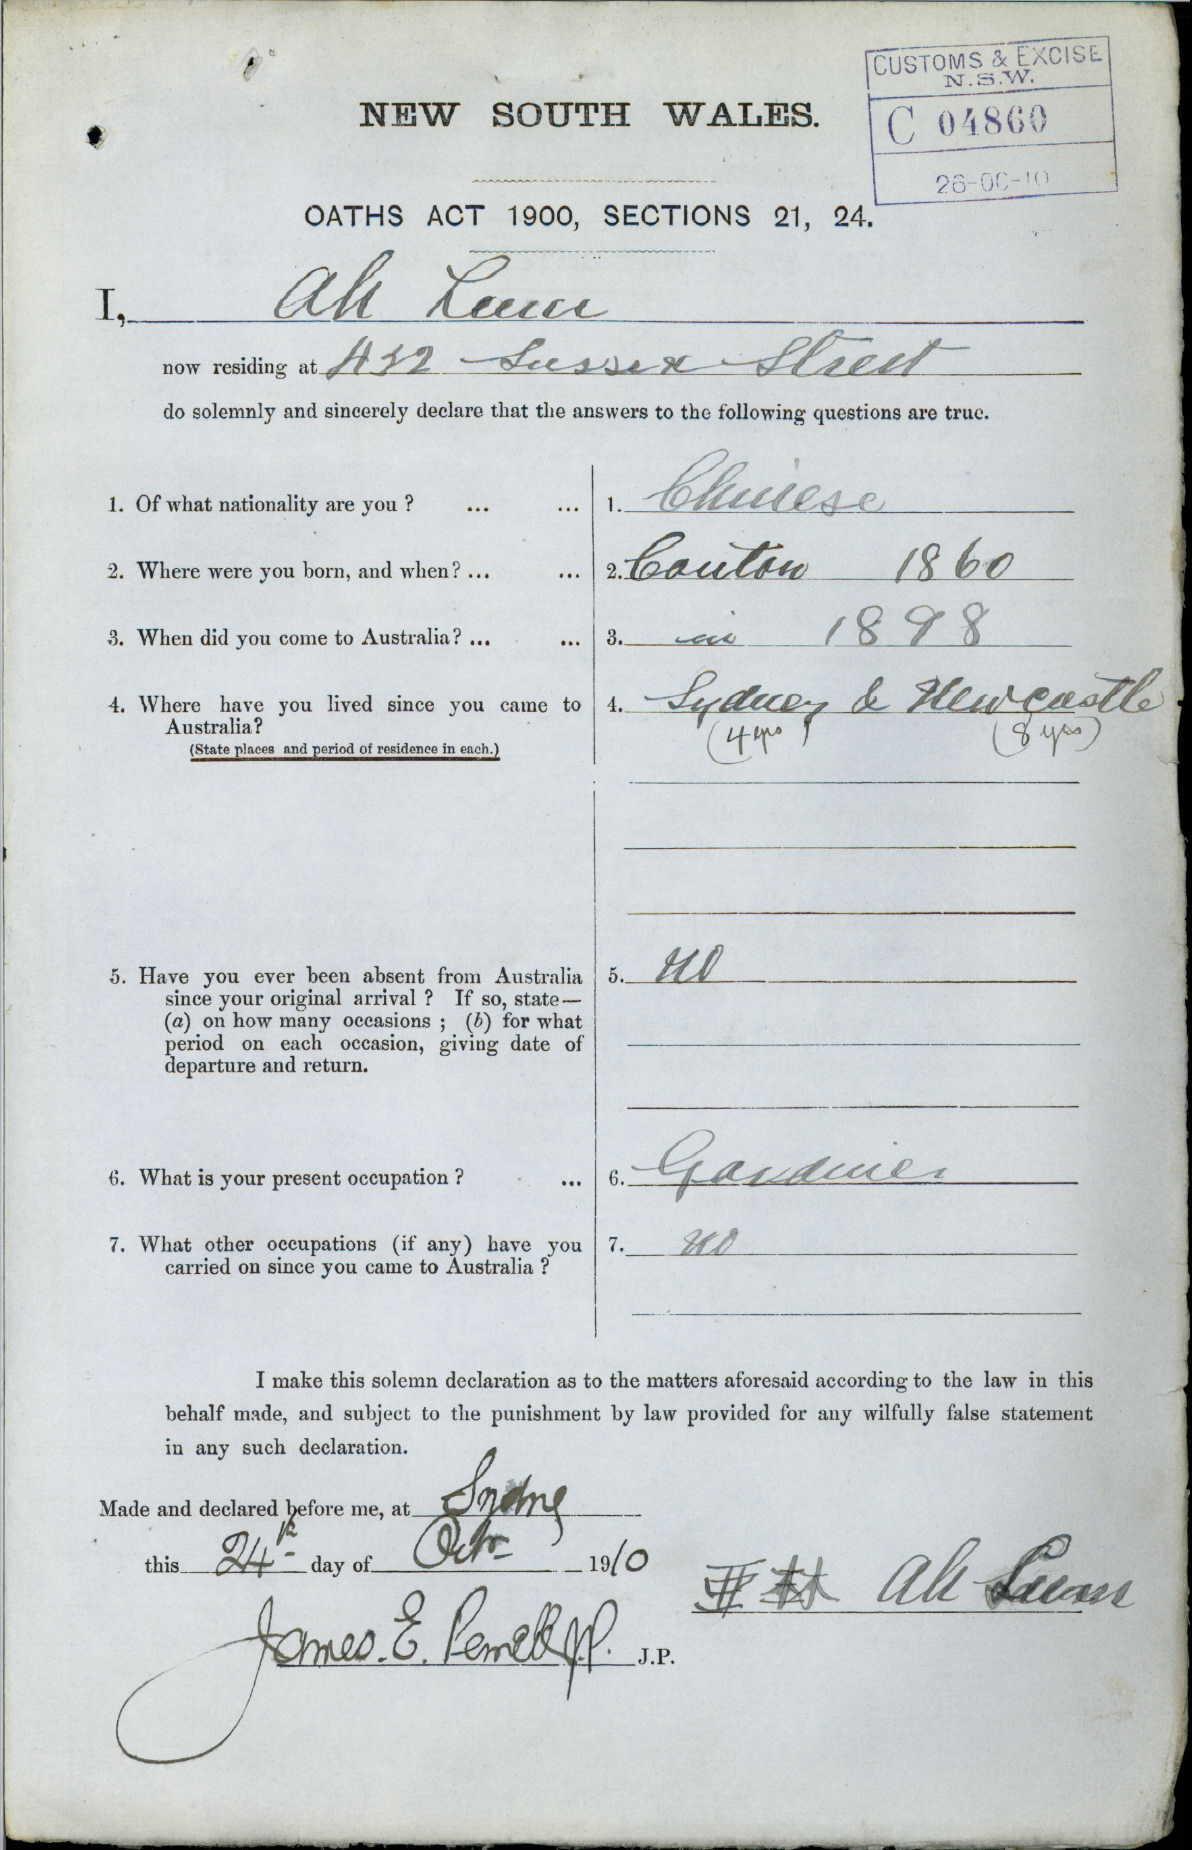 CUSTOMS & EXCISE
N.S.W.
C 04860
26-OC-10
NEW SOUTH WALES.
OATHS ACT 1900, SECTIONS 21, 24.
I, Ah Lum
now residing at 432 Sussex Street
do solemnly and sincerely declare that the answers to the following questions are true.
1. Of what nationality are you ? ... ... 1. Chinese
2. Where were you born, and when? ... ... 2. Canton 1860
3. When did you come to Australia? ... ... 3. in 1898
4. Where have you lived since you came to 4. Sydney & Newcastle
Australia? (4 yrs) (8 yrs)
(State places and period of residence in each.)
5. Have you ever been absent from Australia 5. no
since your original arrival ? If so, state—
(a) on how many occasions ; (b) for what
period on each occasion, giving date of
departure and return.
6. What is your present occupation ? ... 6. Gardiner
7. What other occupations (if any) have you 7. no
carried on since you came to Australia ?
I make this solemn declaration as to the matters aforesaid according to the law in this
behalf made, and subject to the punishment by law provided for any wilfully false statement
in any such declaration.
Made and declared before me, at Sydney
this 24th day of Octr 1910
Ah Lum
James. E. J.P. J.P.